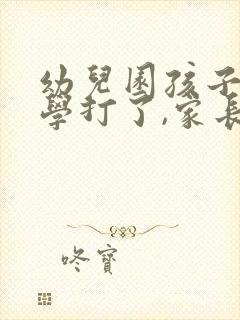 幼兒園孩子
學打了,家長
咚寶